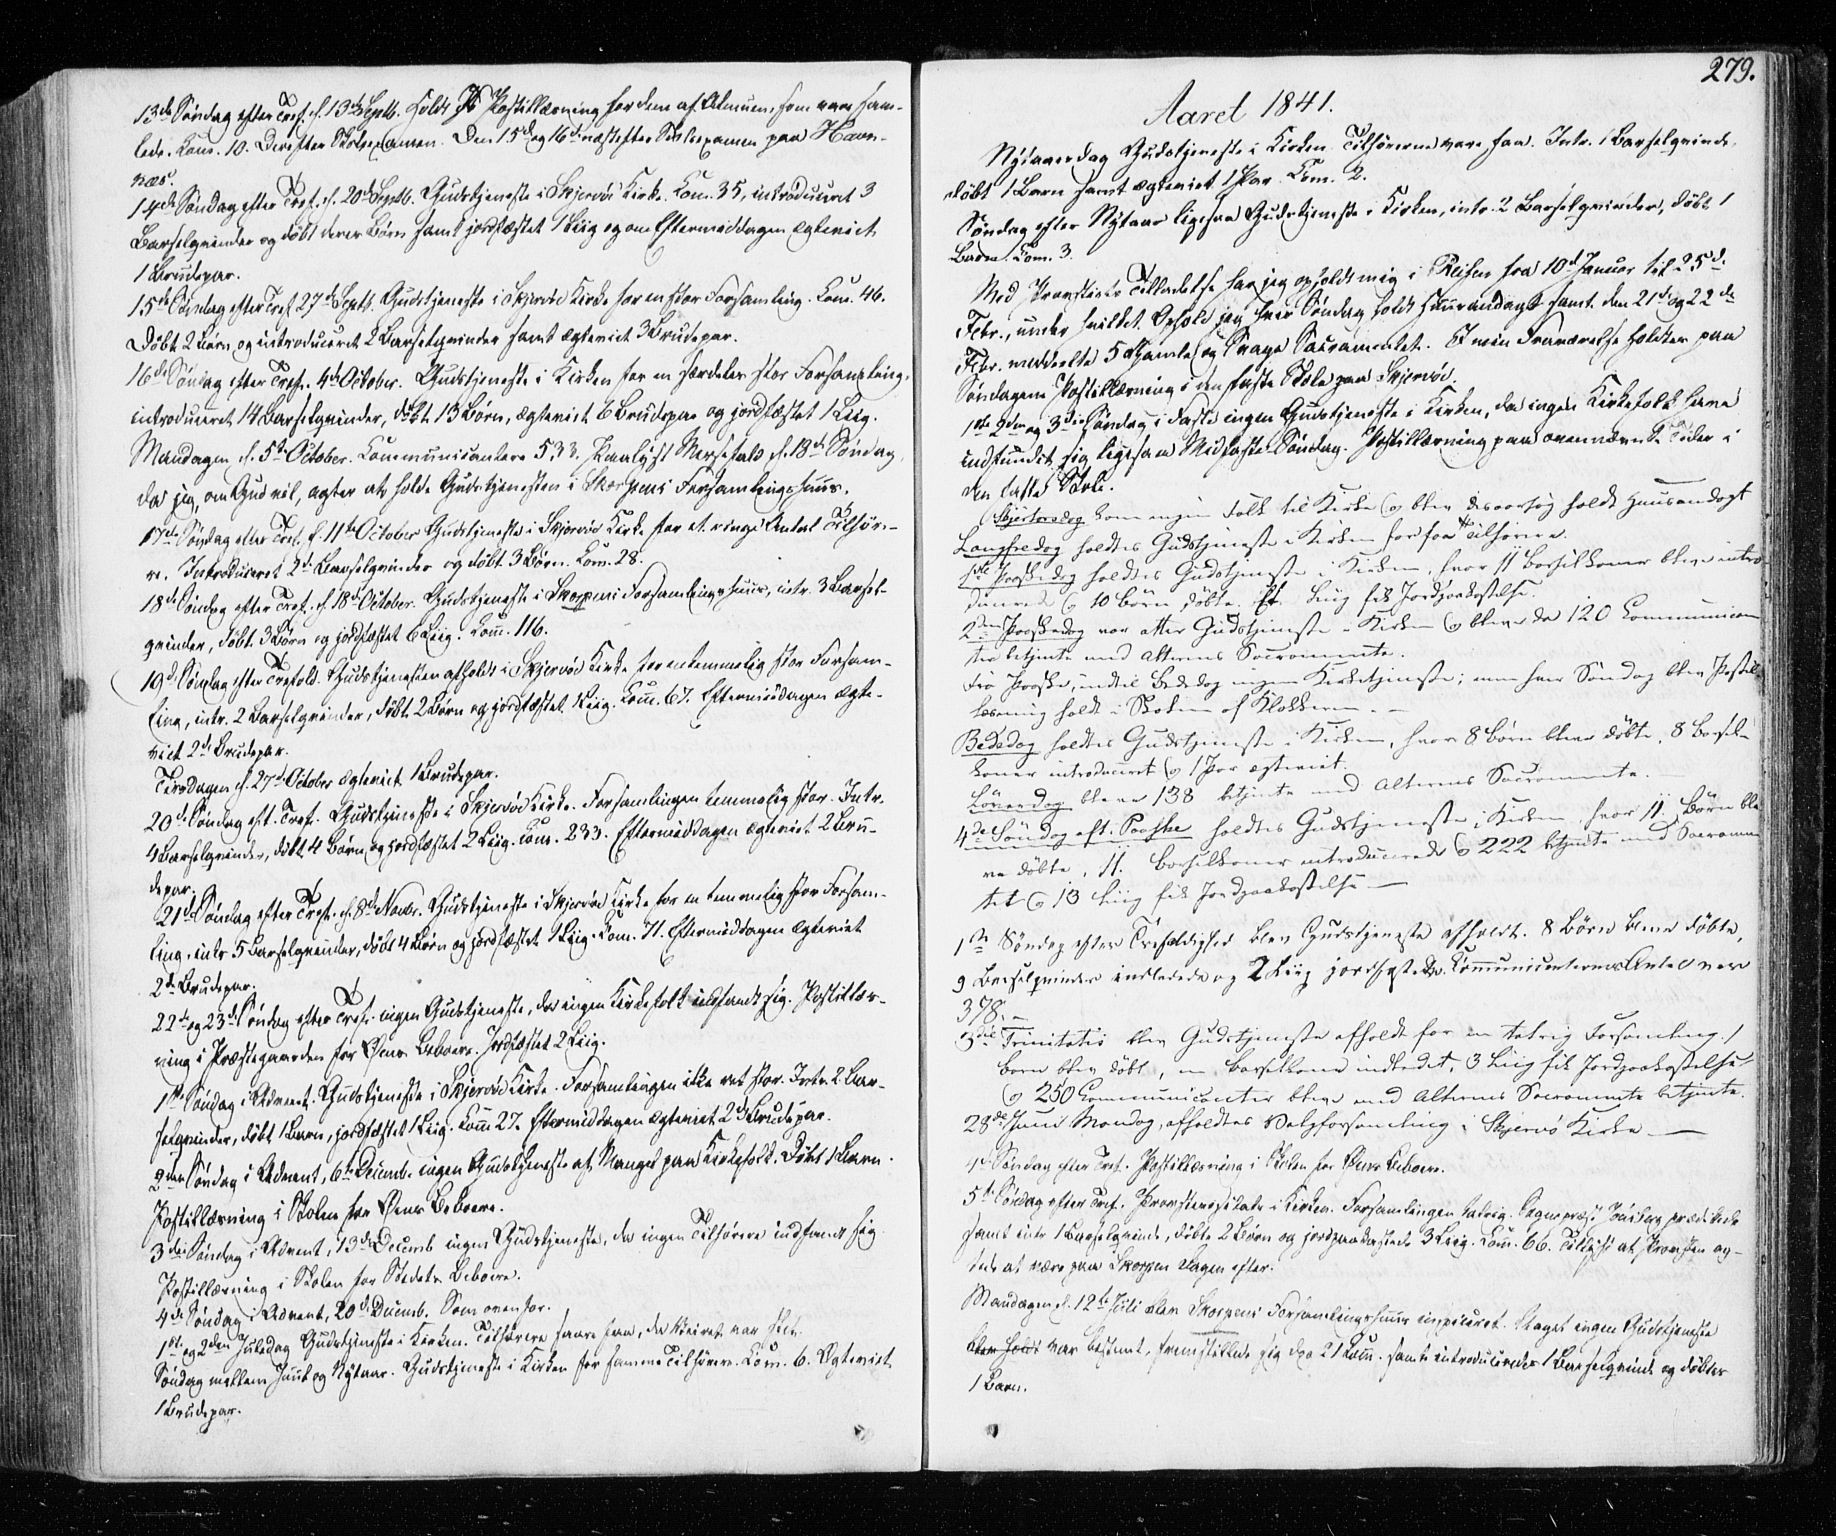 13de Søndag efter Tref. d. 13de Septb. holdt Postillæsning for dem af Almuen, som vare sam-
lede. Kom. 10. Derefter Skoleexamen. Den 15de og 16de næstefter Skoleexamen paa Havn-
næs.
14de Søndag efter Tref. d. 20de Septb. Gudstjeneste i Skjervø Kirke. Kom. 35, introduceret 3
Barselqvinder og døbt deres Børn samt jordfæstet 1 Liig og om Eftermiddagen ægteviet
1 Brudepar.
15de Søndag efter Tref. 27de Septb. Gudstjeneste i Skjervø Kirke for en stor Forsamling. Kom. 46.
Døbt 2 Børn og introduceret 2 Barselqvinder samt ægteviet 3 Brudepar.
16de Søndag efter Tref. 4de October. Gudstjeneste i Kirken for en særdeles stor Forsamling,
introduceret 14 Barselqvinder, døbt 13 Børn, ægteviet 6 Brudepar og jordfæstet 1 Liig.
Mandagen d. 5te October. Communicantere 533. Paalyst Messefald d. 18de Søndag,
da jeg, om Gud vil, agter at holde Gudstjenesten i Skorpens Forsamlingshuus.
17de Søndag efter Tref. d. 11te October Gudstjeneste i Skjervø Kirke for et ringe Antal Tilhøre-
re. Introduceret 2de Barselqvinder og døbt 3 Børn. Kom. 28.
18de Søndag efter Tref. d. 18de October. Gudstjeneste i Skorpens Forsamlingshuus, intr. 3 Barsel-
qvinder, døbt 3 Børn og jordfæstet 6 Liig. Kom. 116.
19de Søndag efter Trefold. Gudstjenesten afholdt i Skjervø Kirke for en temmelig stor Forsam-
ling, intr. 2 Barselqvinder, døbt 2 Børn og jordfæstet 1 Liig. Kom. 67. Eftermiddagen ægte-
viet 2de Brudepar.
Tirsdagen d. 27de October ægteviet 1 Brudepar.
20de Søndag eft. Tref. Gudstjeneste i Skjervø Kirke. Forsamlingen temmelig stor. Intr.
4 Barselqvinder, døbt 4 Børn og jordfæstet 2 Liig. Kom. 233. Eftermiddagen ægteviet 2 Bru-
depar.
21de Søndag efter Tref. d. 8de Novbr. Gudstjeneste i Skjervø Kirke for en temmelig stor Forsam-
ling, intr. 5 Barselqvinder, døbt 4 Børn og jordfæstet 1 Liig. Kom. 71. Eftermiddagen ægteviet
2de Brudepar.
22de og 23de Søndag efter Tref. ingen Gudstjeneste, da ingen Kirkefolk indfandt sig. Postillæs-
ning i Præstegaarden for Øens Beboere. Jordfæstet 2 Liig.
1ste Søndag i Advent. Gudstjeneste i Skjervø Kirke. Forsamlingen ikke ret stor. Intr. 2 Bar-
selqvinder, døbt 1 Barn, jordfæstet 1 Liig. Kom. 27. Eftermiddagen ægteviet 2de Brudepar.
2den Søndag i Advent, 6te Decemb. ingen Gudstjeneste af Mangel paa Kirkefolk. Døbt 1 Barn.
Postillæsning i Skolen for Øens Beboere.
3die Søndag i Advent, 13de Decemb. ingen Gudstjeneste, da ingen Tilhørere indfandt sig.
Postillæsning i Skolen for Stedets Beboere.
4de Søndag i Advent, 20de Decemb. Som ovenfor.
1ste og 2den Juledag Gudstjeneste i Kirken. Tilhørere saare faa, da Veiret var
Søndag mellem Juul og Nytaar. Gudstjeneste i Kirken for samme Tilhørere. Kom. 6. Ægteviet
1 Brudepar.
279.
Aaret 1841.
Nytaarsdag Gudstjeneste i Kirken. Tilhørerne vare faa. Intr. 1 Barselqvinde,
døbt 1 Barn samt ægteviet 1 Par. Kom. 2.
Søndag efter Nytaar ligesaa Gudstjeneste i Kirken, intr. 2 Barselqvinder, døbt 1
Barn. Kom. 3.
Med Provstiets Tilladelse har jeg opholdt mig i Reisen fra 10de Januar til 25de
Febr., under hvilket Ophold jeg hver Søndag holdt Huusandagt samt den 21de og 22de
Febr. meddeelte 5 Gamle og Svage Sacramentet. I min Fraværelse holdtes paa
Søndagene Postillæsning i den faste Skole paa Skjervø.
1ste 2den og 3die Søndag i Faste ingen Gudstjeneste i Kirken, da ingen Kirkefolk have
indfundet sig ligesaa Midfaste Søndag. Postillæsning paa ovennævnte Tider i
den faste Skole.
Skjertorsdag kom ingen Folk til Kirke og blev desaarsag holdt Huusandagt
Langfredag holdtes Gudstjeneste i Kirken for faa Tilhørere.
1ste Paaskedag holdtes Gudstjeneste i Kirken, hvor 11 Barselkoner bleve intro-
ducerede og 10 Børn døbte. Et Liig fik Jordpaakastelse.
2den Paaskedag var atter Gudstjeneste i Kirken og bleve da 120 Communican-
ter betjente med Alterens Sacramente.
Fra Paaske, indtil Bededag ingen Kirketjeneste; men hver Søndag blev Postil-
læsning holdt i Skolen af Klokkeren. –
Bededag holdtes Gudstjeneste i Kirken, hvor 8 Børn bleve døbte, 8 Barsel-
koner introduceret og 1 Par ægteviet.
Løverdag bleve 138 betjente med Alterens Sacramente.
4de Søndag eft. Paaske holdtes Gudstjeneste i Kirken, hvor 11 Børn ble-
ve døbte, 11 Barselkoner introducerede og 222 betjente med Sacramen-
tet og 13 Liig fik Jordpaakastelse —
1ste Søndag efter Trefoldighed blev Gudstjeneste afholdt. 8 Børn bleve døbte,
9 Barselqvinder indledede og 2 Liig jordfæstede. Kommunicanternes Antal var
378. –
3die Trinitatis blev Gudstjeneste afholdt for en talrig Forsamling. 1
Barn blev døbt, en Barselkone indledet, 3 Liig fik Jordpaakastelse
og 250 Communicanter bleve med Alterens Sacramente betjente.
28de Juni Mandag, afholdtes Valgforsamling i Skjervø Kirke —
4de Søndag efter Tref. Postillæsning i Skolen for Øens Beboere.
5te Søndag efter Tref. Provstevisitats i Kirken. Forsamlingen talrig. Sognepræst prædikede
samt intr. 1 Barselqvinde, døbte 2 Børn og jordpaakastede 3 Liig. Kom. 66. Tillyst at Provsten ag-
tede at være paa Skorpen Dagen efter.
Mandagen d. 12te Juli blev Skorpens Forsamlingshuus inspiceret. Skjøndt ingen Gudstjeneste
blev holdt var bestemt, fremstillede sig dog 21 Kom. samt introduceredes 1 Barselqvinde og døbtes
1 Barn.